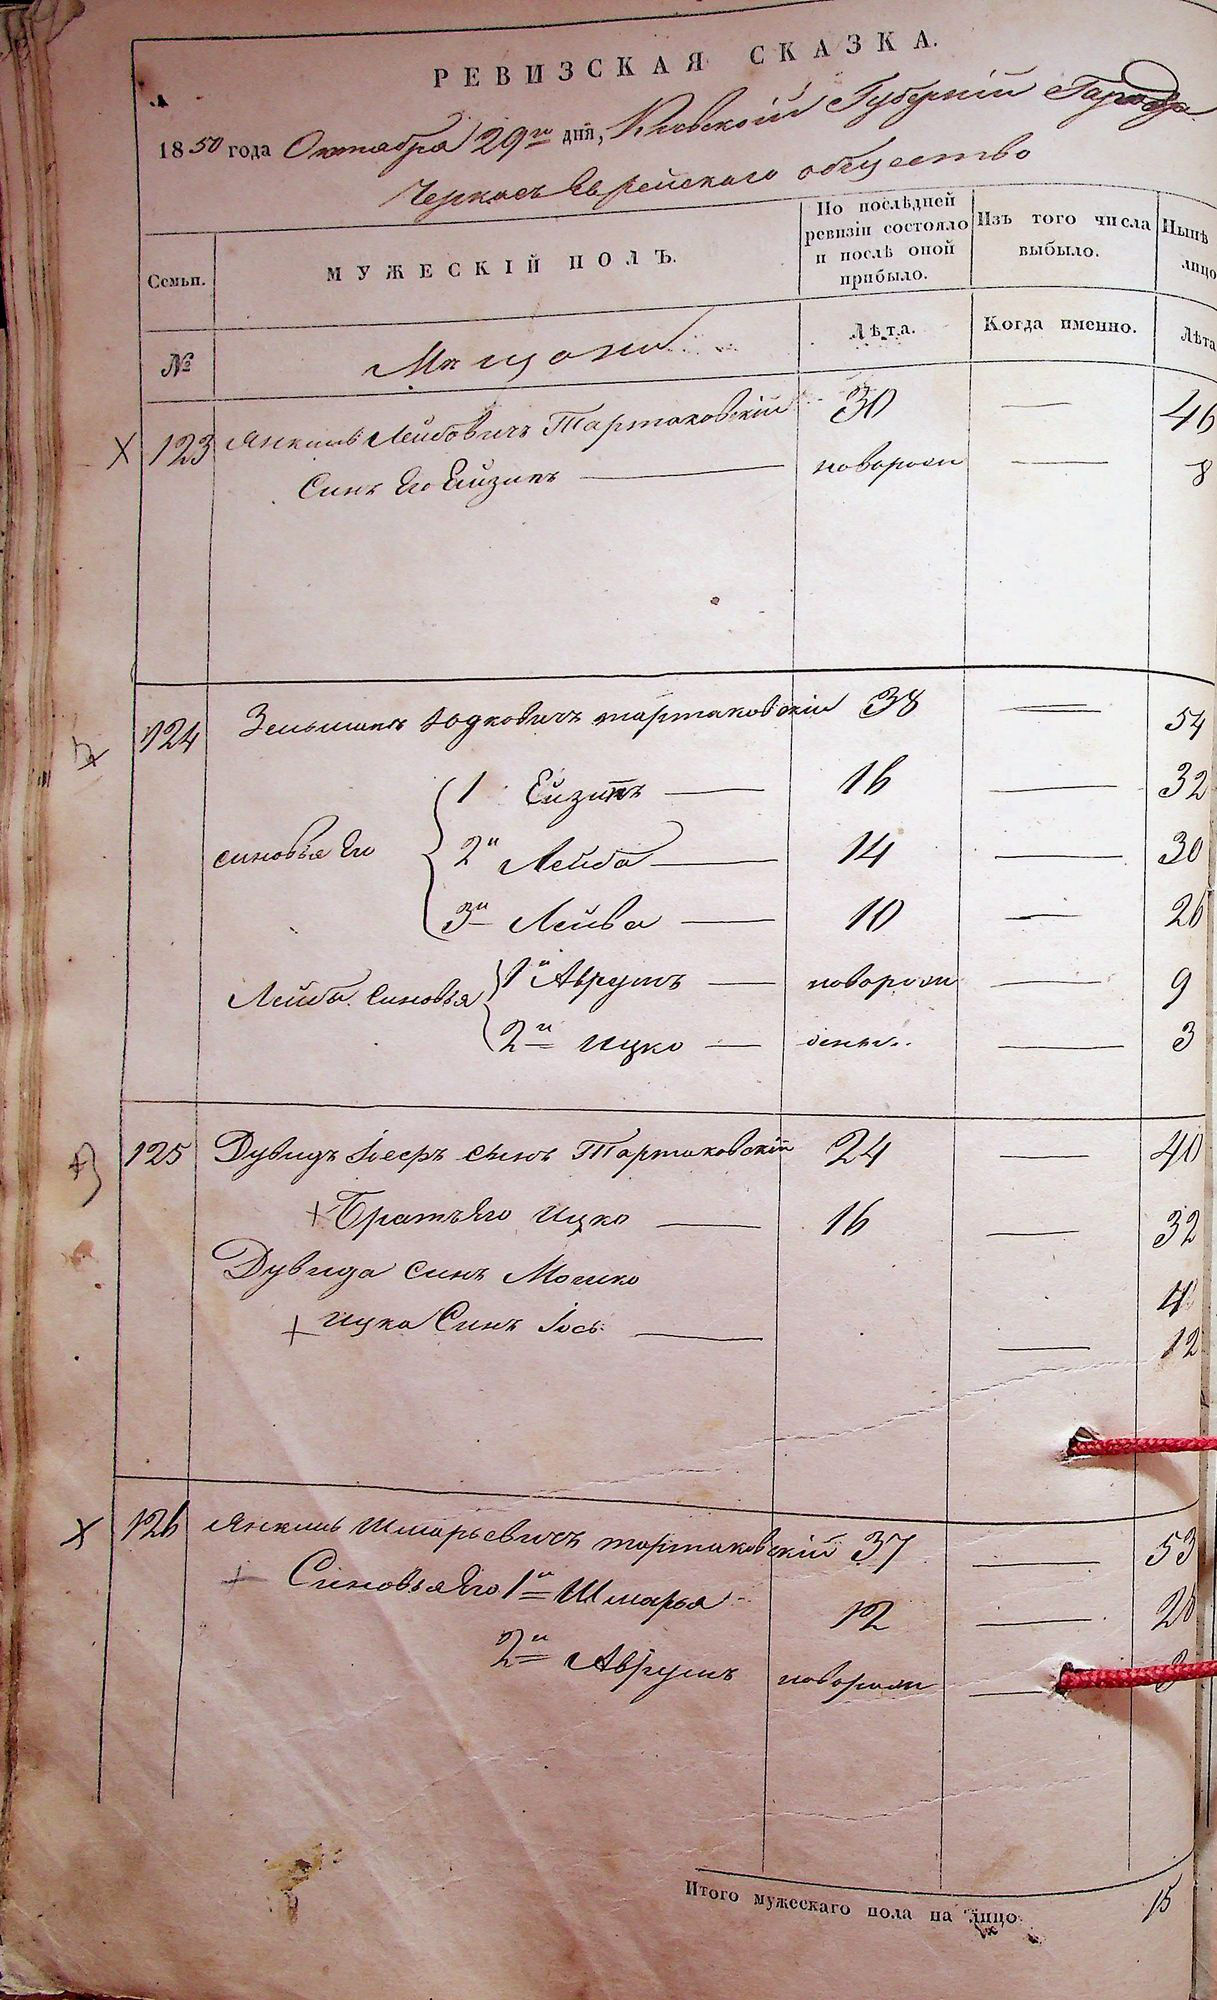 РЕВИЗСКАЯ СКАЗКА.
1850 года Октября 29го дня, Киевской Губернiи Города
Черкасъ Еврейскаго общество
Семьи. МУЖЕСКIЙ ПОЛЪ. По послѣдней ревизiи состояло и послѣ оной прибыло. Изъ того числа выбыло. Нынѣ лицо
№ Мѣщане Лѣта. Когда именно. Лѣта
123 Янкель Лейбовичъ Тартаковскiй 30 — 46
Синъ Его Ейзикъ — новорож — 8
124 Зельманъ Юдковичъ тартаковскiй 38 — 54
1 Ейзикъ — 16 — 32
синовья Его 2й Лейба — 14 — 30
3й Лейва — 10 — 26
Лейбы Синовья 1й Аврумъ — новорож — 9
2й Ицко — — 3
125 Дувидъ Iосфъ сынъ Тартаковскiй 24 — 40
Братъ Его Ицко — 16 — 32
Дувида синъ Мошко 4
Ицка Синъ Iось — — 12
126 Янкель Шмарьевичъ тартаковскiй 37 — 53
Синовья Его 1й Шмарья 12 — 28
2й Аврумъ новорож —
Итого мужескаго пола на лицо 15